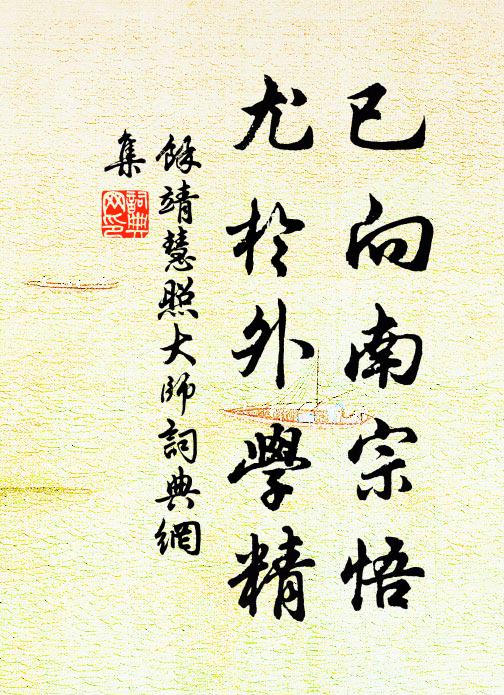 已向南宗悟
尤於外學精
餘靖慧照大師詞典網
集
詞典
网印